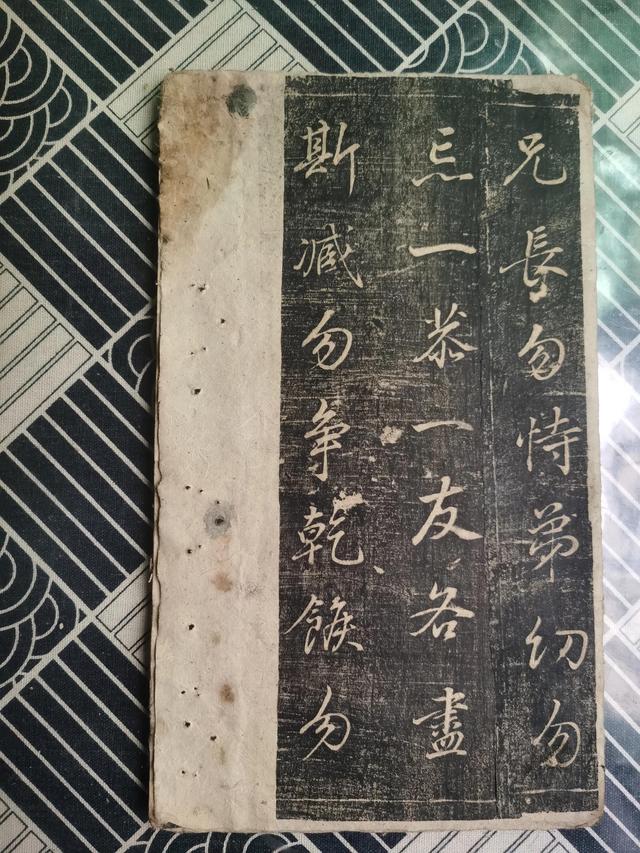 兄長勿恃弟幼勿
忘一恭一友各盡
斯臧勿争乾餱勿